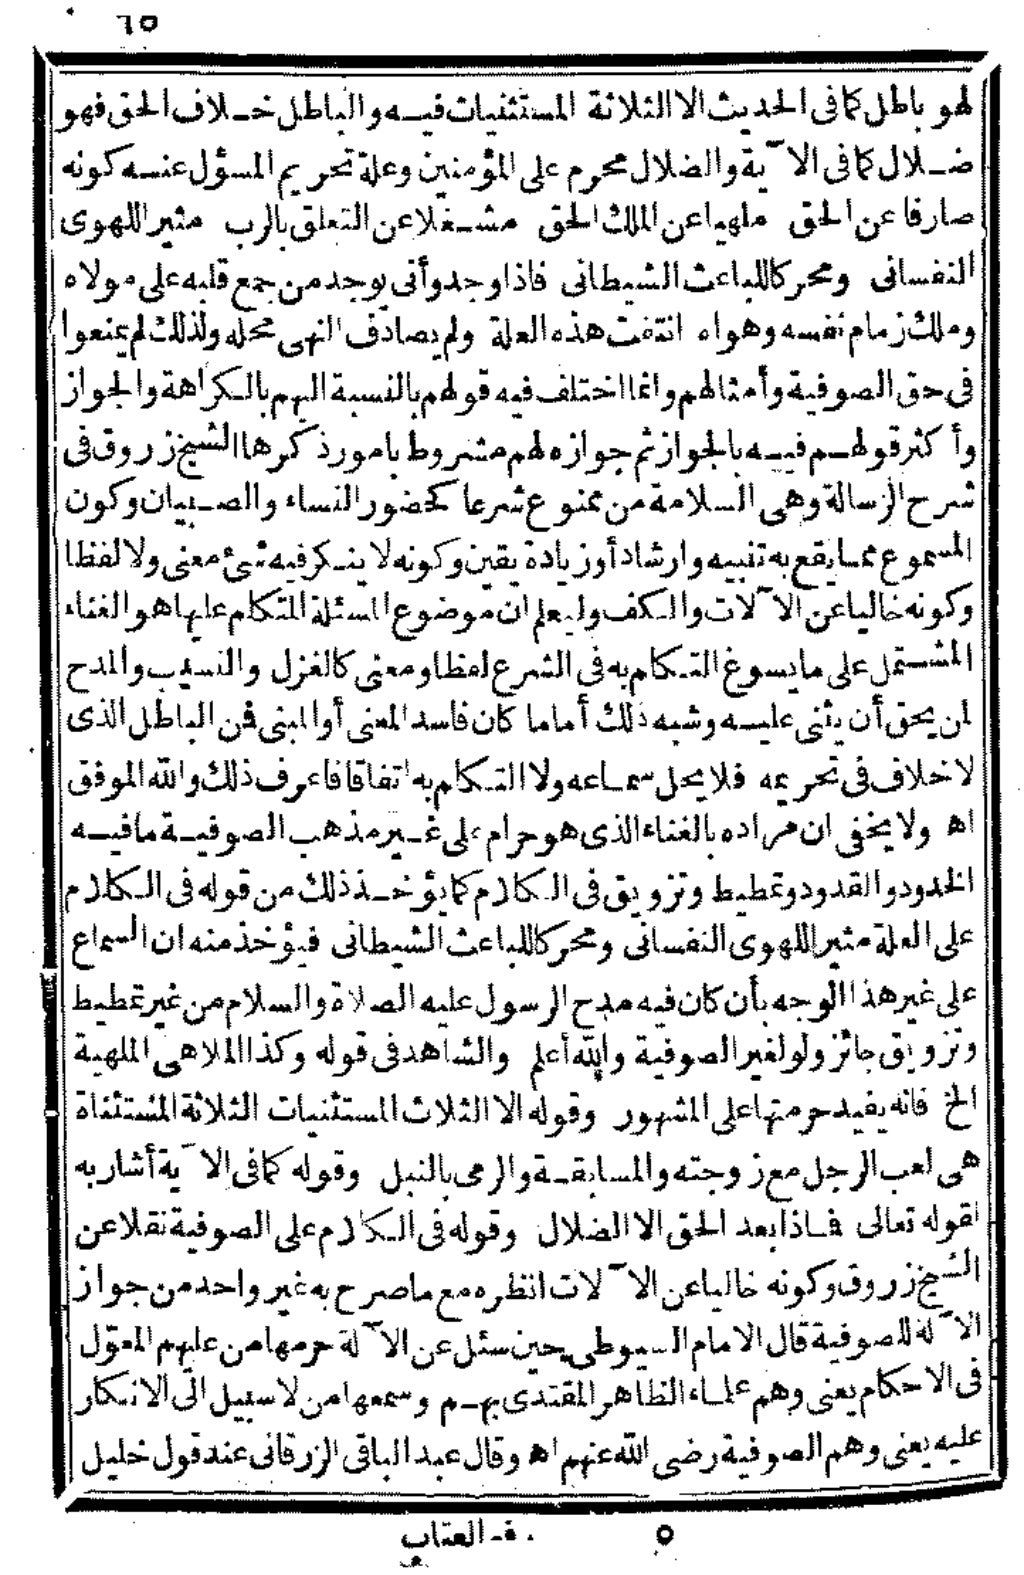 ٦٥
لهو باطل كما فى الحديث الا الثلاثة المستثنيات فيه والباطل خلاف الحق فهو
ضلال كما فى الآية والضلال محرم على المؤمنين وعلة تحريم المسؤل عنه كونه
صارفا عن الحق ملهيا عن الملك الحق مشغلا عن التعلق بالرب مثيرا للهوى
النفسانى ومحركا للباعث الشيطانى فاذا وجد وأنى يوجد من جمع قلبه على مولاه
وملك زمام نفسه وهواه انتفت هذه العلة ولم يصادف النهى محله ولذلك لم يمنعوا
فى حق الصوفية وأمثالهم وانما اختلف فيه قولهم بالنسبة اليهم بالكراهة والجواز
وأكثر قولهم فيه بالجواز ثم جوازه لهم مشروط بامور ذكرها الشيخ زروق فى
شرح الرسالة وهى السلامة من ممنوع شرعا كحضور النساء والصبيان وكون
المسموع مما يقع به تنبيه وارشاد أو زيادة يقين وكونه لا ينكر فيه شئ معنى ولا لفظا
وكونه خاليا عن الآلات والكف وليعلم ان موضوع المسئلة المتكلم عليها هو الغناء
المشتمل على ما يسوغ التكلم به فى الشرع لفظا ومعنى كالغزل والنسيب والمدح
لمن يحق أن يثنى عليه وشبه ذلك أما ما كان فاسد المعنى أو المبنى فمن الباطل الذى
لا خلاف فى تحريمه فلا يحل سماعه ولا التكلم به اتفاقا فاعرف ذلك والله الموفق
اه ولا يخفى ان مراده بالغناء الذى هو حرام على غير مذهب الصوفية ما فيه
الخدود والقدود وتمطيط وتزويق فى الكلام كما يؤخذ ذلك من قوله فى الكلام
على العلة مثيرا للهوى النفسانى ومحركا للباعث الشيطانى فيؤخذ منه ان السماع
على غير هذا الوجه بأن كان فيه مدح الرسول عليه الصلاة والسلام من غير تمطيط
وتزويق جائز ولو لغير الصوفية والله أعلم والشاهد فى قوله وكذا الملاهى الملهية
الخ فانه يفيد حرمتها على المشهور وقوله الا الثلاث المستثنيات الثلاثة المستثناة
هى لعب الرجل مع زوجته والمسابقة والرمى بالنبل وقوله كما فى الآية أشار به
لقوله تعالى فماذا بعد الحق الا الضلال وقوله فى الكلام على الصوفية نقلا عن
الشيخ زروق وكونه خاليا عن الآلات انظره مع ما صرح به غير واحد من جواز
الآلة للصوفية قال الامام السيوطى حين سئل عن الآلة حرمها من عليهم المعوّل
فى الاحكام يعنى وهم علماء الظاهر المقتدى بهم وسمعها من لا سبيل الى الانكار
عليه يعنى وهم الصوفية رضى الله عنهم اه وقال عبد الباقى الزرقانى عند قول خليل
٥ ف - العتاب